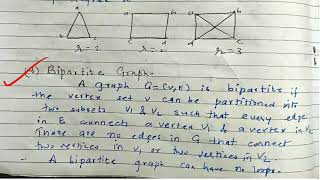 a
b
c
a
b
d
c
a
b
d
c
r = 2
r = 2
r = 3
Bipartite Graph-
A graph G = (V,E) is bipartite if
the vertex set V can be partitioned into
two subsets V1 & V2 such that every edge
in E connects a vertex V1 & a vertex in V2
There are no edges in G that connect
two vertices in V1 or two vertices in V2.
- A bipartite graph can have no loops.